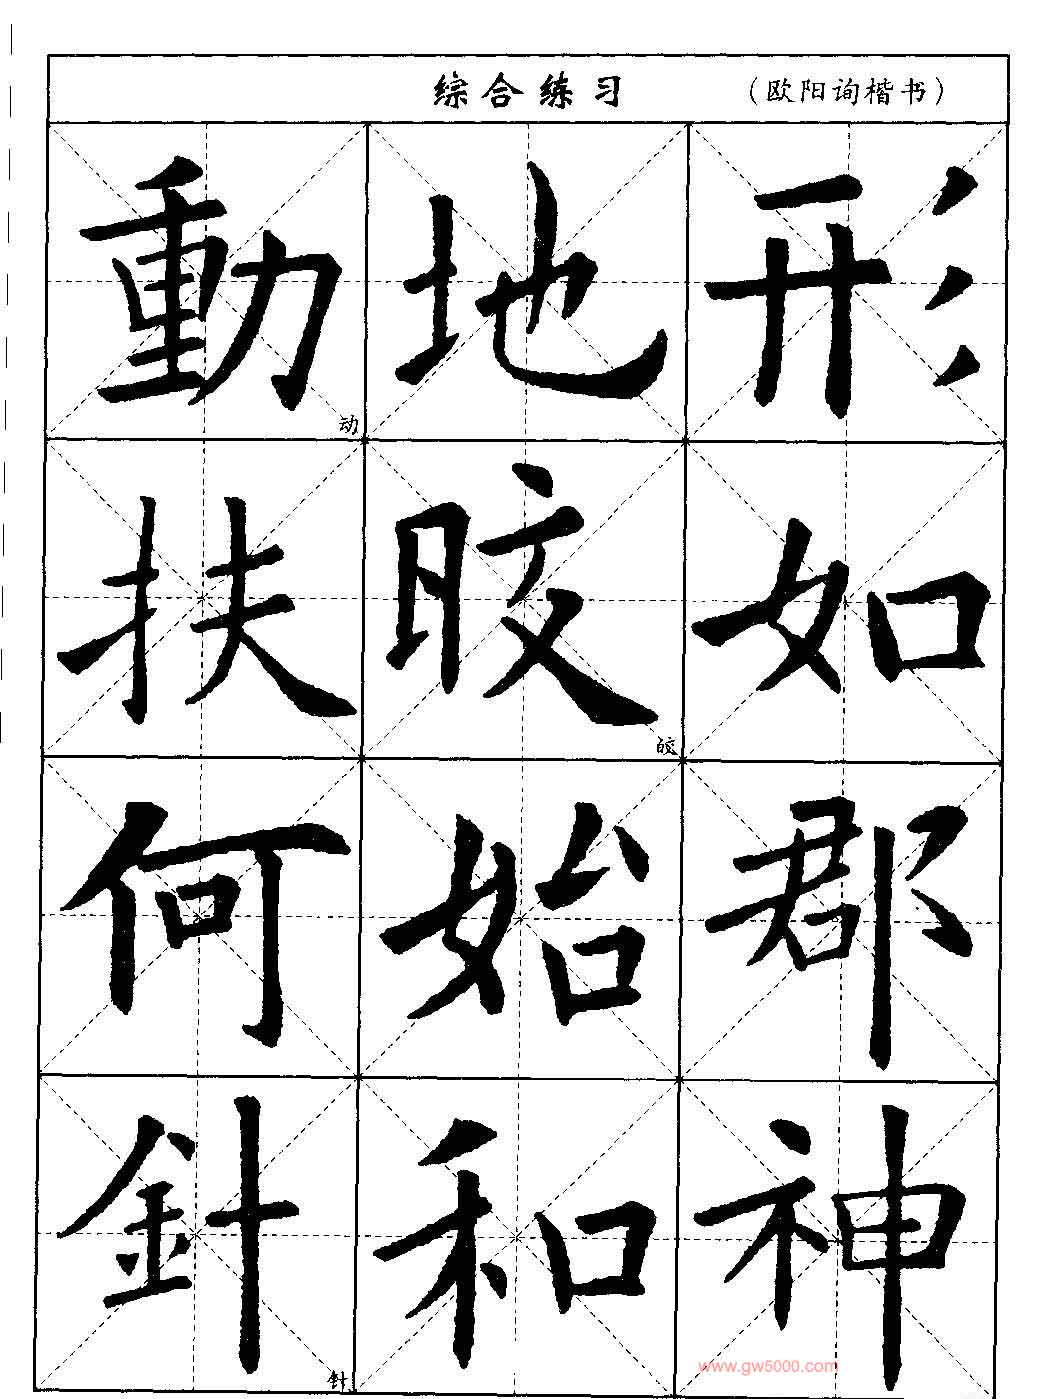 综合练习 (欧阳询楷书)
動 地 形
动
扶 晈 如
皎
何 始 郡
針 和 神
针
www.gw5000.com